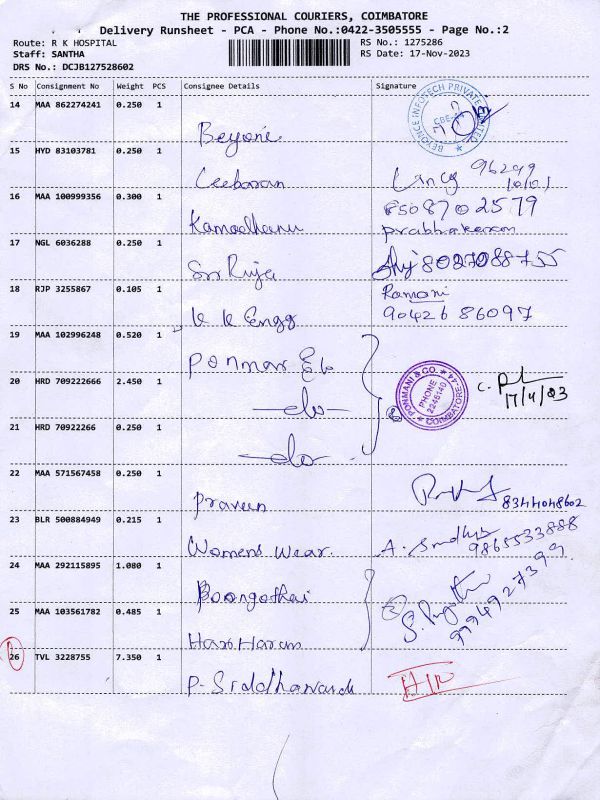 THE PROFESSIONAL COURIERS, COIMBATORE
Delivery Runsheet - PCA - Phone No.:0422-3505555 - Page No.:2
Route: R K HOSPITAL RS No.: 1275286
Staff: SANTHA RS Date: 17-Nov-2023
DRS No.: DCJB127528602
S No Consignment No Weight PCS Consignee Details Signature
14 MAA 862274241 0.250 1
BEYONCE INFOTECH PRIVATE LIMITED
15 HYD 83103781 0.250 1
96299
16 MAA 100999356 0.300 1
8508702579
Kamadhenu prabhakaran
17 NGL 6036288 0.250 1
8027088755
18 RJP 3255867 0.105 1
Ramani
K K Engg 90426 86097
19 MAA 102996248 0.520 1
20 HRD 709222666 2.450 1
PONMANI & CO. COIMBATORE-44
PHONE 2246140
21 HRD 70922266 0.250 1
do
do
22 MAA 571567458 0.250 1
Praveen 8344048602
23 BLR 500884949 0.215 1
Womens Wear. 9865533888
24 MAA 292115895 1.080 1
Poongothai
9994927399
25 MAA 103561782 0.485 1
Hari Haran
26 TVL 3228755 7.350 1